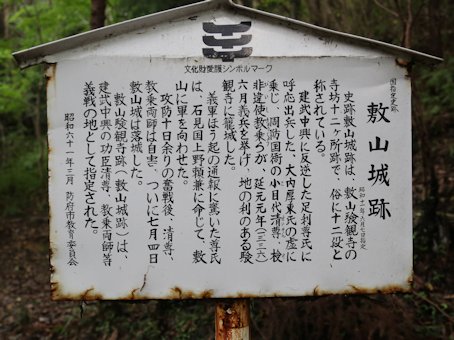 文化財愛護シンボルマーク
国指定史跡
敷山城跡
史跡敷山城跡は、敷山験観寺の
寺坊十二ヶ所跡で、俗に十二段と
称されている。
建武中興に反逆した足利尊氏に
呼応出兵した、大内厚東氏の虚に
乗じ、周防国衙の小目代清尊、検
非違使教乗らが、延元元年(一三三六)
六月義兵を挙げ、地の利のある験
観寺に篭城した。
義軍ほう起の通報に驚いた尊氏
は、石見国上野頼兼に命じて、敷
山に軍を向わせた。
攻防十日余りの奮戦後、清尊、
教乗両師は自害、ついに七月四日
敷山城は落城した。
敷山験観寺跡(敷山城跡)は、
建武中興の功臣清尊、教乗両師等
義戦の地として指定された。
昭和六十一年三月 防府市教育委員会